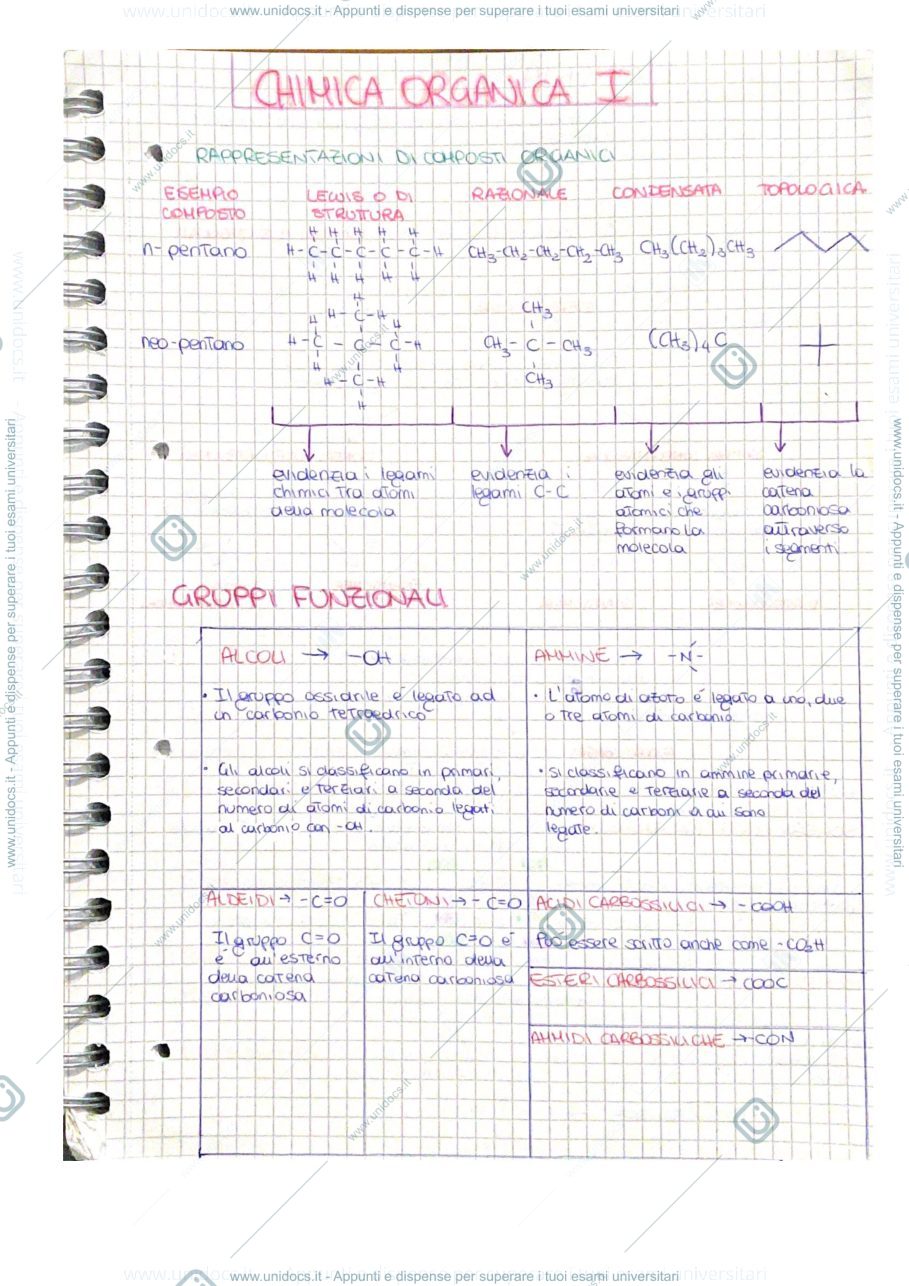 www.unidocs.it - Appunti e dispense per superare i tuoi esami universitari
CHIMICA ORGANICA I
RAPPRESENTAZIONI DI COMPOSTI ORGANICI
ESEMPIO COMPOSTO
LEWIS O DI STRUTTURA
RAZIONALE
CONDENSATA
TOPOLOGICA
n-pentano
H H H H H
H-C-C-C-C-C-H
H H H H H
CH3-CH2-CH2-CH2-CH3
CH3(CH2)3CH3
neo-pentano
H
H-C-H
H H
H-C - C - C-H
H H
H-C-H
H
CH3
CH3- C - CH3
CH3
(CH3)4 C
evidenzia i legami
chimici tra atomi
della molecola
evidenzia i
legami C-C
evidenzia gli
atomi e i gruppi
atomici che
formano la
molecola
evidenzia la
catena
carboniosa
attraverso
i segmenti
GRUPPI FUNZIONALI
ALCOLI → -OH
• Il gruppo ossidrile è legato ad
un carbonio tetraedrico
• Gli alcoli si classificano in primari,
secondari e terziari a seconda del
numero di atomi di carbonio legati
al carbonio con -OH.
AMMINE → -N-
• L'atomo di azoto è legato a uno, due
o tre atomi di carbonio.
• Si classificano in ammine primarie,
secondarie e terziarie a seconda del
numero di carboni a cui sono
legate.
ALDEIDI → -C=O
Il gruppo C=O
è all'esterno
della catena
carboniosa
CHETONI → -C=O
Il gruppo C=O è
all'interno della
catena carboniosa
ACIDI CARBOSSILICI → -COOH
Può essere scritto anche come -CO2H
ESTERI CARBOSSILICI → COOC
AMMIDI CARBOSSILICHE → -CON
www.unidocs.it - Appunti e dispense per superare i tuoi esami universitari
www.unidocs.it - Appunti e dispense per superare i tuoi esami universitari
www.unidocs.it - Appunti e dispense per superare i tuoi esami universitari